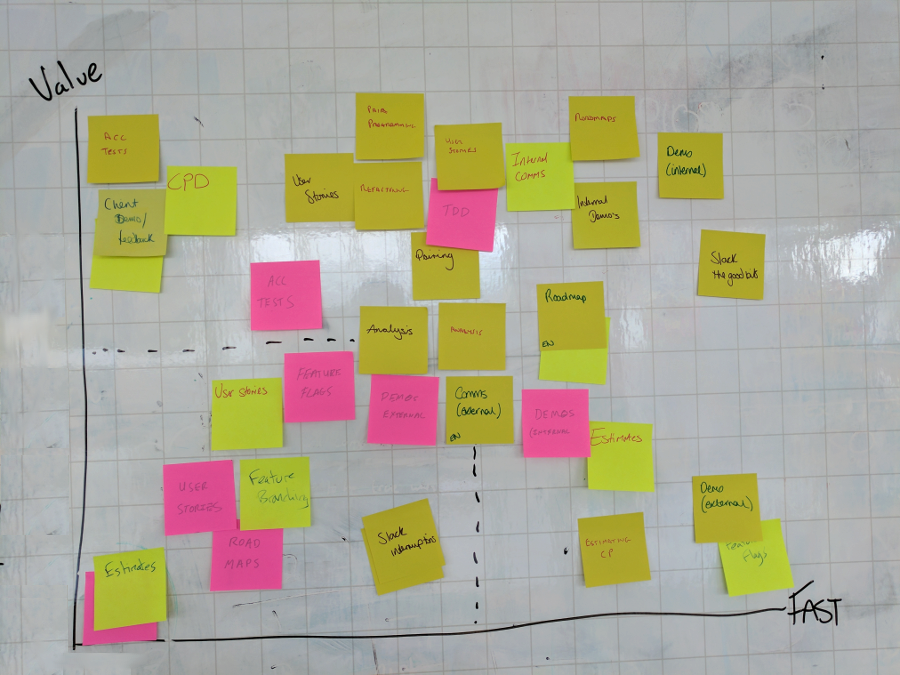 Value
ACC
TESTS
CPD
Client
Demo/
feedback
User
Stories
PAIR
PROGRAMMING
REFACTORING
USER
STORIES
TDD
Pairing
Internal
COMMS
ROADMAPS
Internal
Demo's
Demo
(internal)
Slack
the good bits
ACC
TESTS
Analysis
ANALYSIS
Roadmap
EN
USER STORIES
FEATURE
FLAGS
DEMOS
EXTERNAL
Comms
(external)
EN
DEMOS
Estimates
USER
STORIES
Feature
Branching
ROAD
MAPS
Slack
interruptions
ESTIMATING
CP
Demo
(external)
Flags
Estimates
FAST